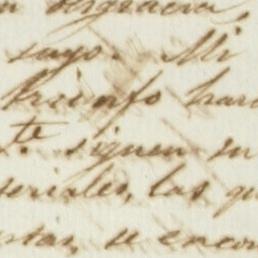 n desgracia
suyo. Mi
triunfo hará
te siguen su
seriales, las qu
estas, se encon